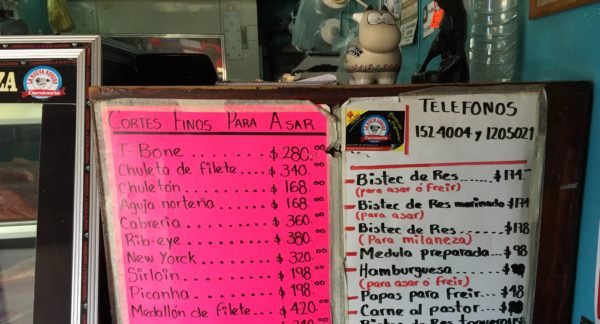 ZA
Carnicería
CORTES FINOS PARA ASAR
T-Bone ........ $ 280.00
Chuleta de filete... $ 340.00
Chuletón ....... $ 168.00
Aguja norteña .... $ 168.00
Cabreria ....... $ 360.00
Rib-eye ........ $ 380.00
New Yorck ...... $ 320.00
Sirloin ........ $ 198.00
Picanha ........ $ 198.00
Medallón de filete... $ 420.00
TELEFONOS
152 4004 y 1205021
- Bistec de Res.....$174
(para asar ó freir)
- Bistec de Res marinado $174
(para asar)
- Bistec de Res.....$178
(Para milaneza)
- Medula preparada...$98
- Hamburguesa .... $
(para asar ó freir)
- Papas para Freir...$48
- Carne al pastor...$
Bistec de Res